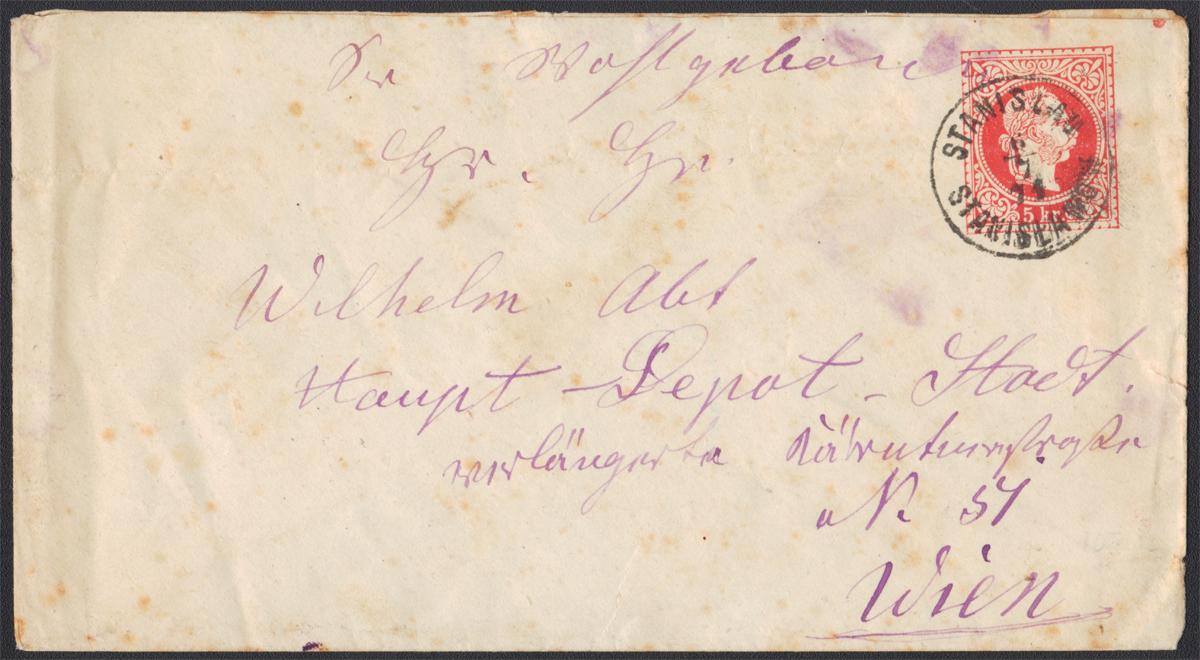 Sr Wohlgeboren
Hr. Hr.
Wilhelm Abt
Haupt-Depot-Stadt.
verlängerte Kärntnerstraße
N. 51
Wien
STANISLAU
74
STANISŁAWÓW
5